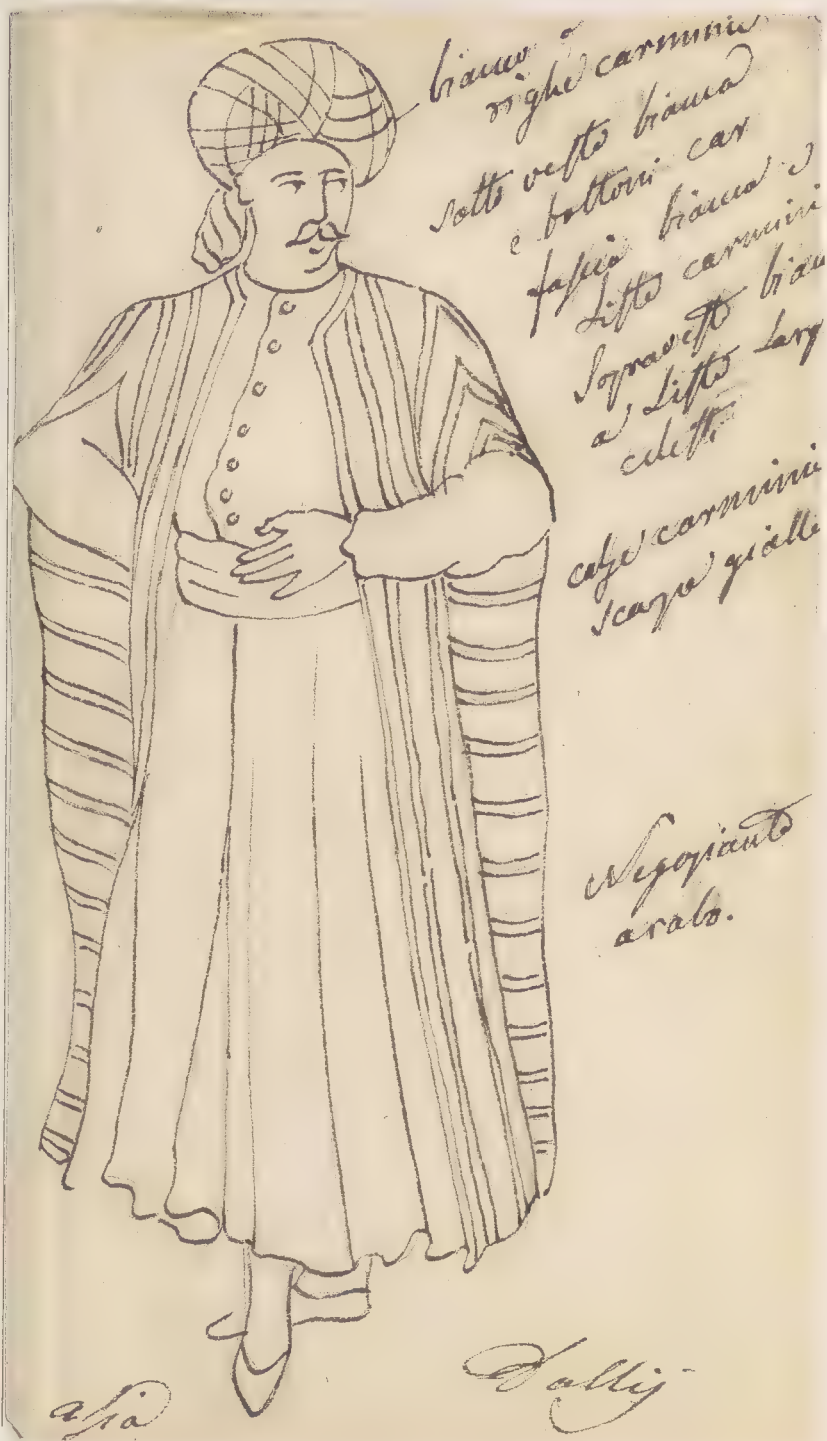 bianco a
righe carminie
sotto veste bianca
e bottoni car
fascia bianca e
Liste carmini
Sopraveste bian
a Liste Larg
celesti
calze carminie
scarpe gialle
Negoziante
arabo.
asia